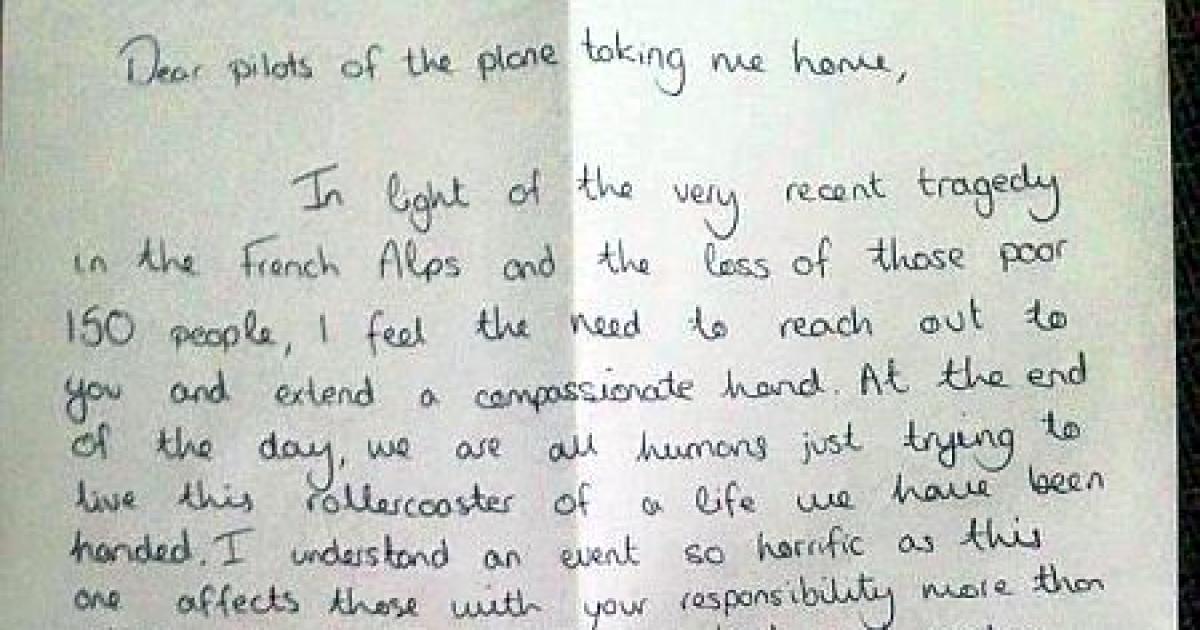 Dear pilots of the plane taking me home,
In light of the very recent tragedy
in the French Alps and the loss of those poor
150 people, I feel the need to reach out to
you and extend a compassionate hand. At the end
of the day, we are all humans just trying to
live this rollercoaster of a life we have been
handed. I understand an event so horrific as this
one affects those with your responsibility more than